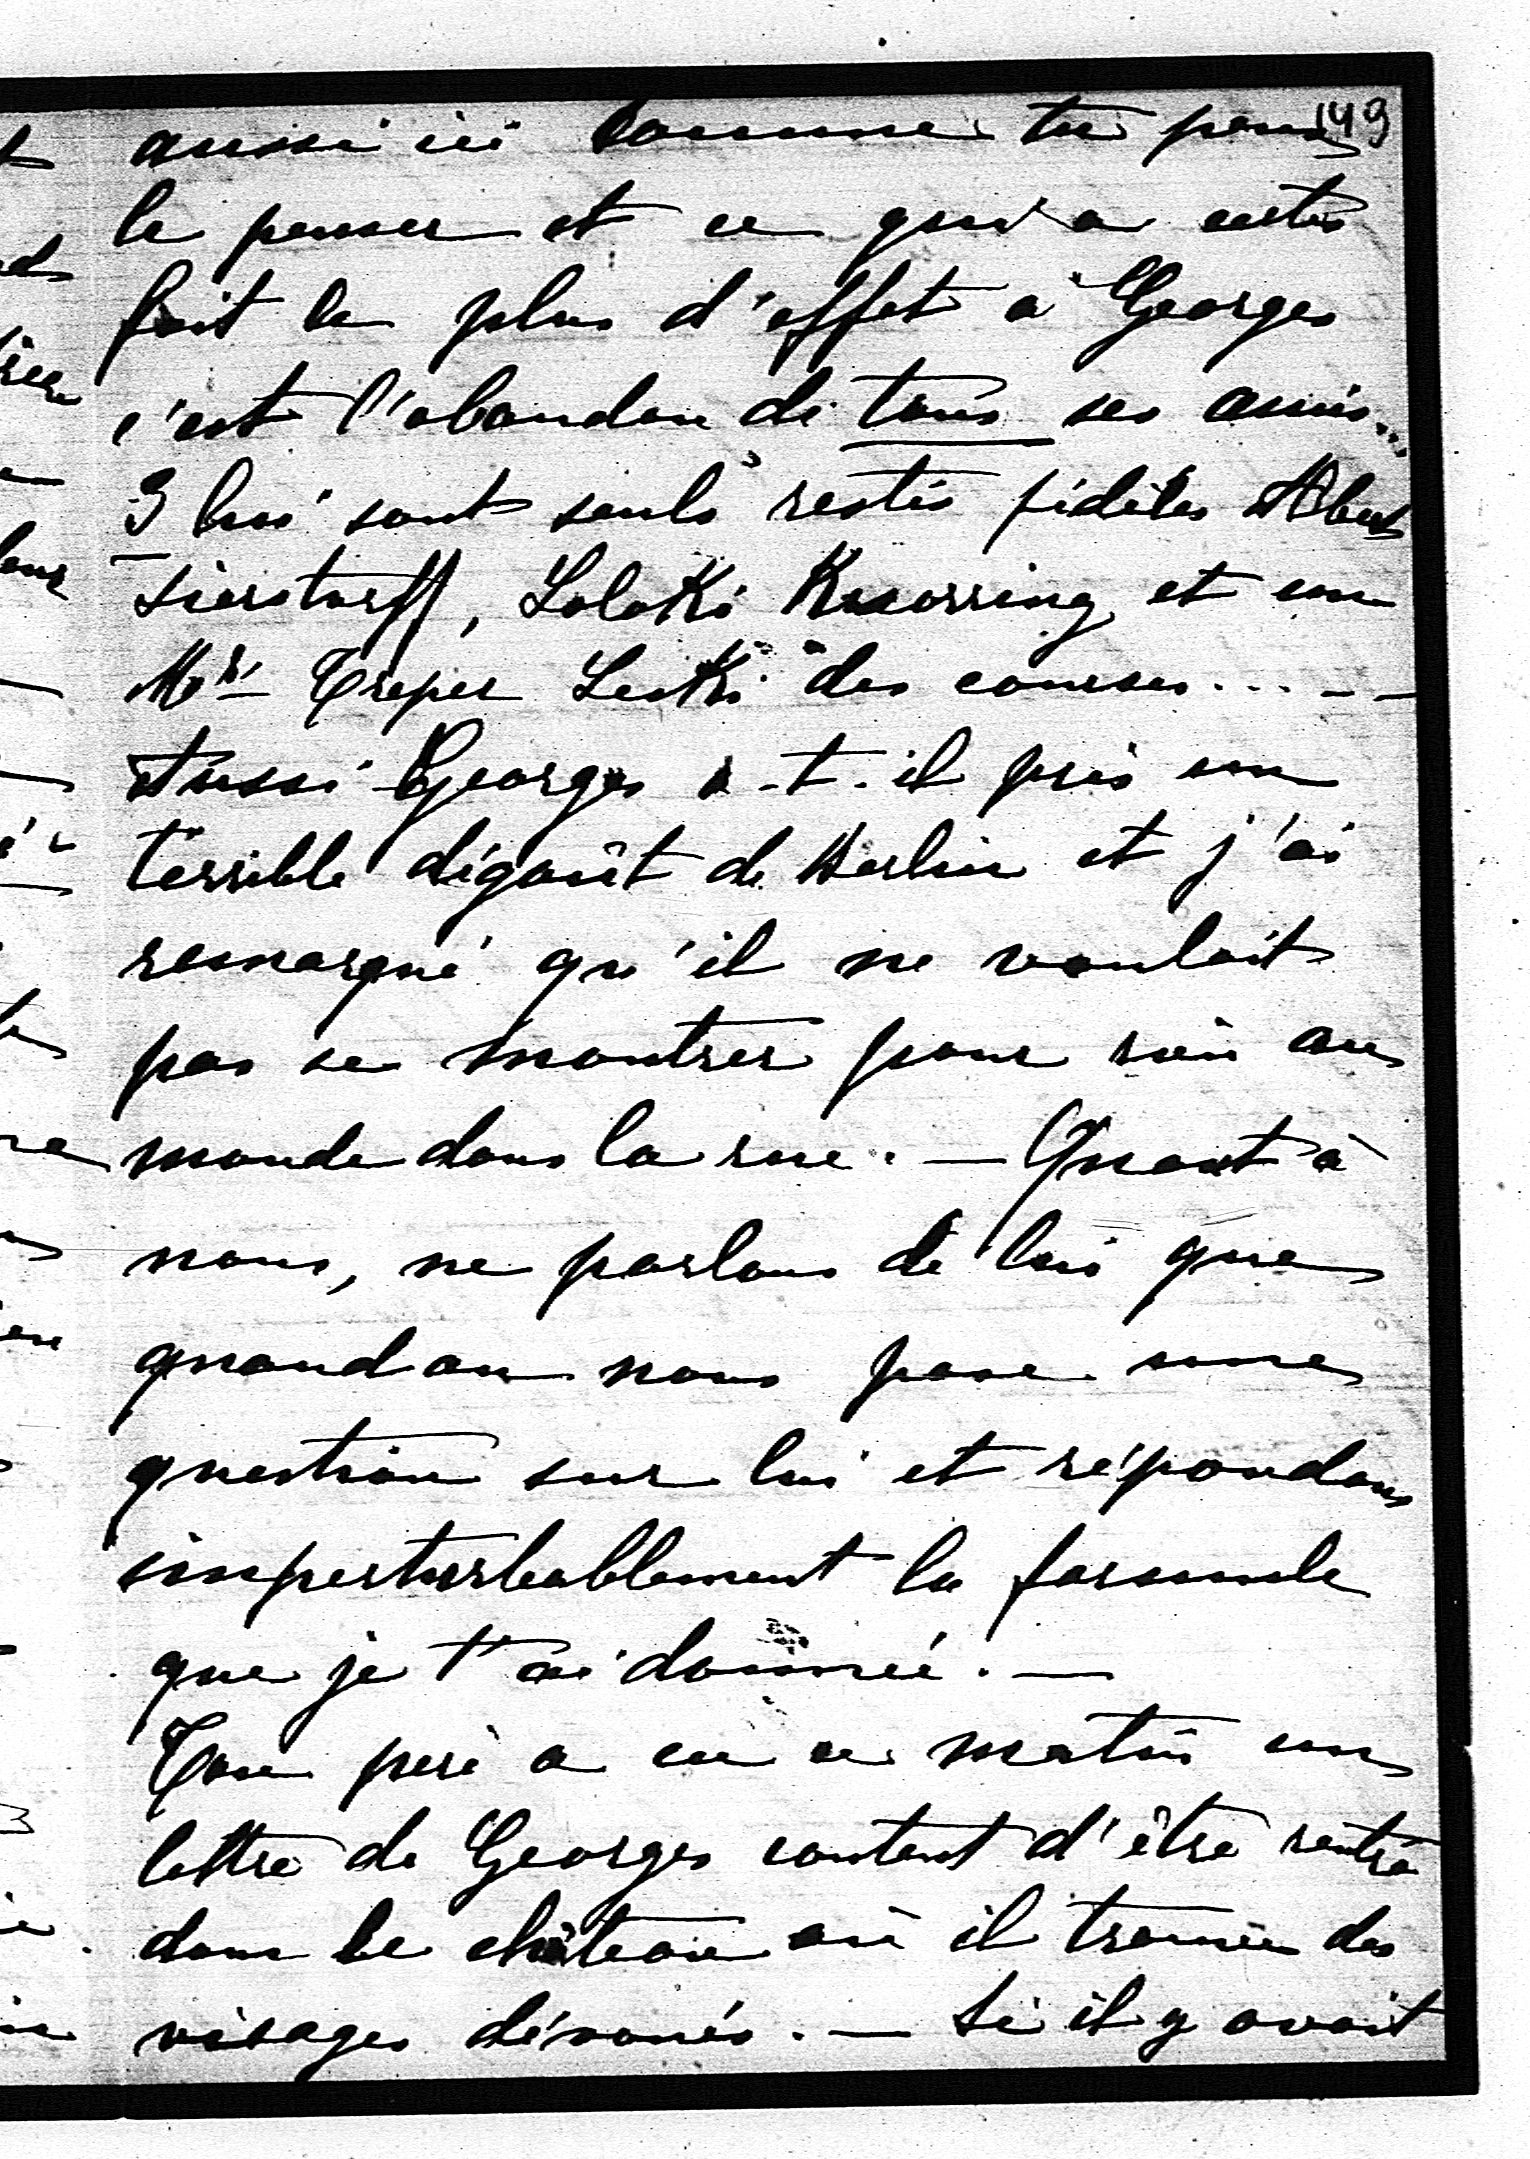 149
aussi ici comme tu peux
le penser et ce qui a
fait le plus d'effet à Georges
c'est l'abandon de tous ses amis...
3 lui sont seuls restés fidèles Albert
Sierstorff, Loloki Knorring et un
Mr Treper Leski des courses... - -
Aussi Georges a-t-il pris un
terrible dégoût de Berlin et j'ai
remarqué qu'il ne voulait
pas se montrer pour rien au
monde dans la rue. — Quant à
nous, ne parlons de lui que
quand on nous pose une
question sur lui et répondons
imperturbablement la formule
que je t'ai donnée. —
Ton père a eu ce matin une
lettre de Georges content d'être rentré
dans le château où il trouve des
visages dévoués. — Si il y avait